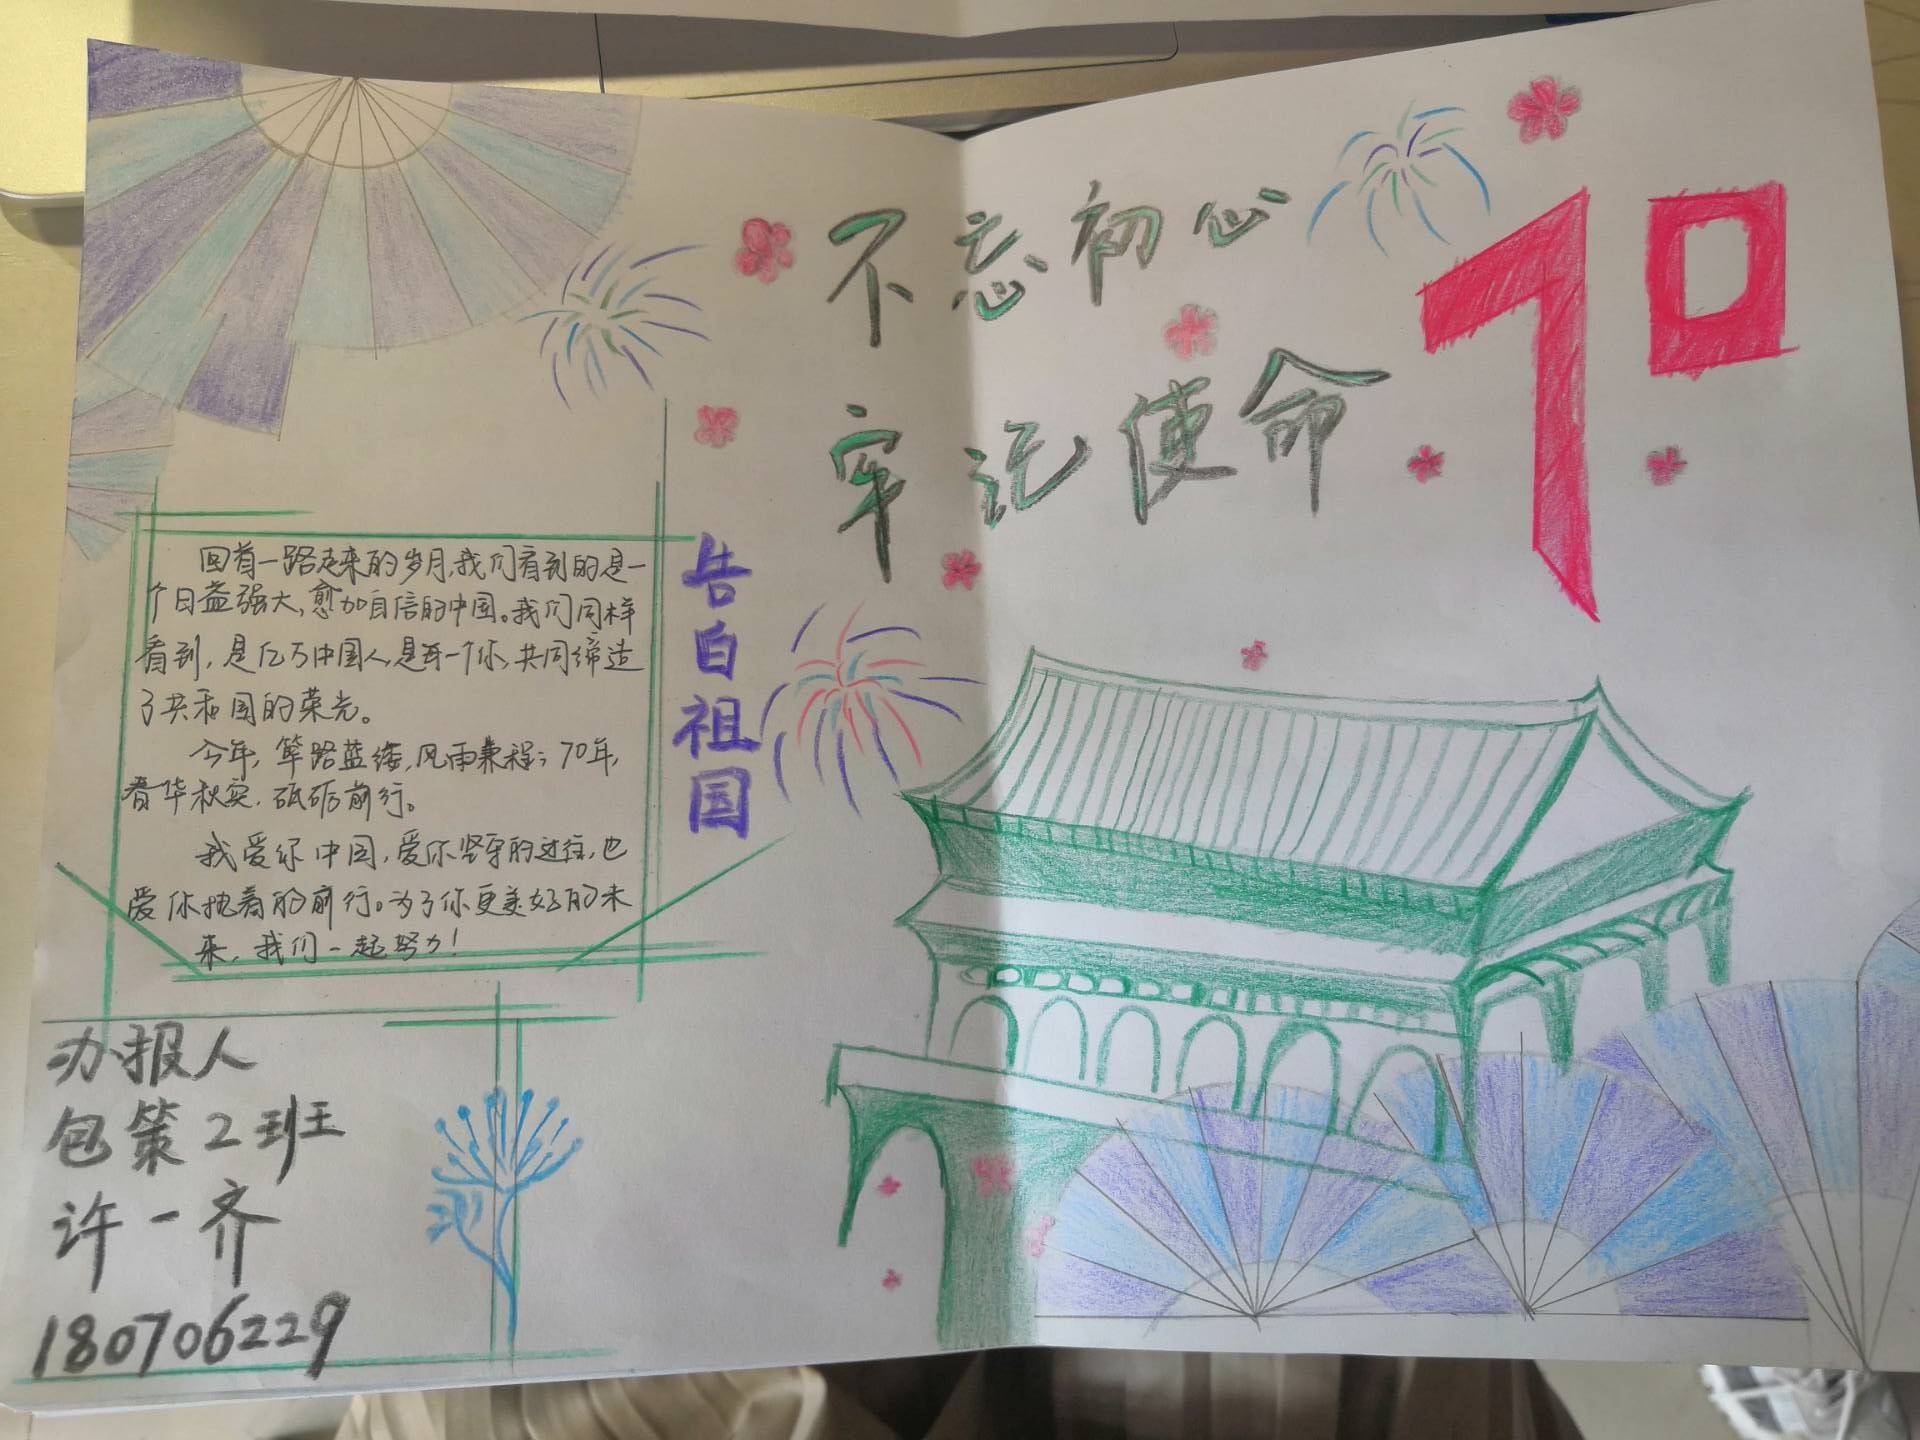 不忘初心
牢记使命
70
告白祖国
回首一路走来的岁月,我们看到的是一
个日益强大,愈加自信的中国。我们同样
看到,是亿万中国人,是每一个你,共同缔造
了共和国的荣光。
今年,筚路蓝缕,风雨兼程;70年,
春华秋实,砥砺前行。
我爱你中国,爱你坚牢的过往,也
爱你执着的前行。为了你更美好的未
来,我们一起努力!
办报人
包策2班
许一齐
180706229